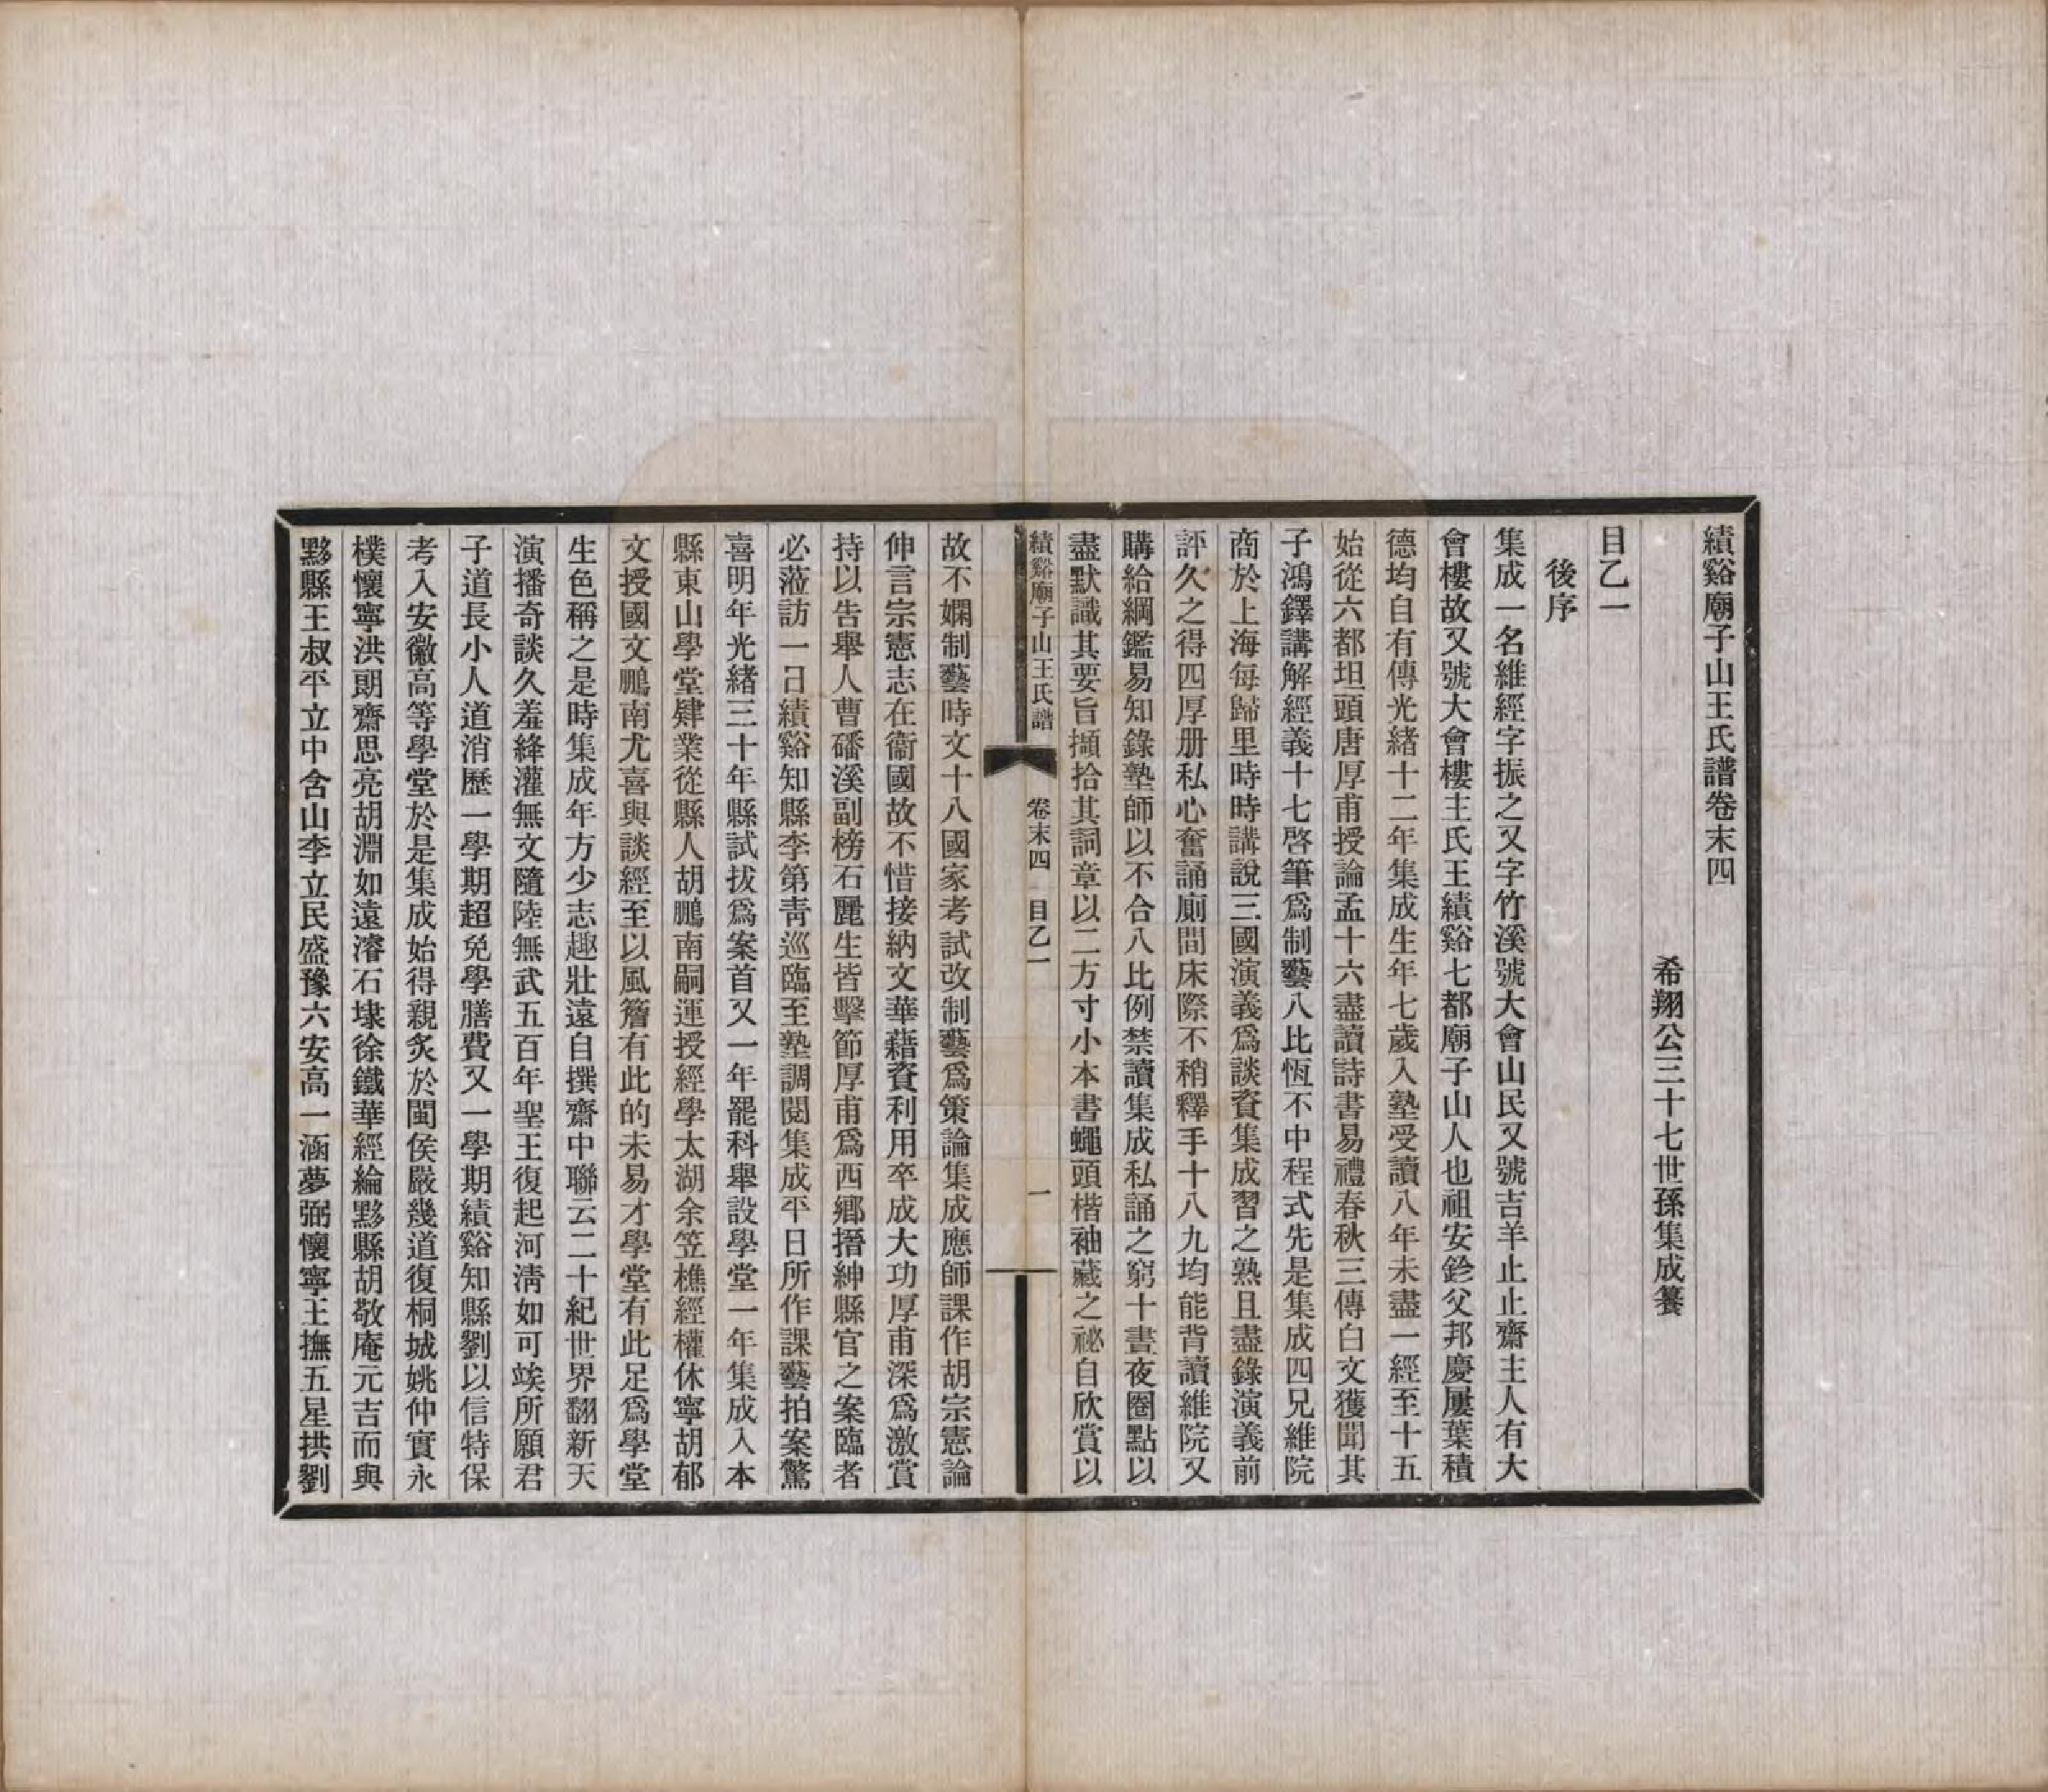 績谿廟子山王氏譜卷末四
希翔公三十七世孫集成纂
目乙一
後序
集成一名維經字振之又字竹溪號大會山民又號吉羊止止齋主人有大
會樓故又號大會樓主氏王績谿七都廟子山人也祖安鉁父邦慶屢葉積
德均自有傳光緒十二年集成生年七歲入塾受讀八年未盡一經至十五
始從六都坦頭唐厚甫授論孟十六盡讀詩書易禮春秋三傳白文獲聞其
子鴻鐸講解經義十七啓筆爲制藝八比恆不中程式先是集成四兄維院
商於上海每歸里時時講說三國演義爲談資集成習之熟且盡錄演義前
評久之得四厚册私心奮誦廁間床際不稍釋手十八九均能背讀維院又
購給綱鑑易知錄塾師以不合八比例禁讀集成私誦之窮十晝夜圈點以
盡默識其要旨擷拾其詞章以二方寸小本書蠅頭楷袖藏之祕自欣賞以
績谿廟子山王氏譜 卷末四 目乙一 一
故不嫻制藝時文十八國家考試改制藝爲策論集成應師課作胡宗憲論
伸言宗憲志在衞國故不惜接納文華藉資利用卒成大功厚甫深爲激賞
持以告舉人曹磻溪副榜石麗生皆擊節厚甫爲西鄉搢紳縣官之案臨者
必蒞訪一日績谿知縣李第靑巡臨至塾調閱集成平日所作課藝拍案驚
喜明年光緒三十年縣試拔爲案首又一年罷科舉設學堂一年集成入本
縣東山學堂肄業從縣人胡鵬南嗣運授經學太湖余笠樵經權休寧胡郁
文授國文鵬南尤喜與談經至以風簷有此的未易才學堂有此足爲學堂
生色稱之是時集成年方少志趣壯遠自撰齋中聯云二十紀世界翻新天
演播奇談久羞絳灌無文隨陸無武五百年聖王復起河淸如可竢所願君
子道長小人道消歷一學期超免學膳費又一學期績谿知縣劉以信特保
考入安徽高等學堂於是集成始得親炙於閩侯嚴幾道復桐城姚仲實永
樸懷寧洪朗齋思亮胡淵如遠濬石埭徐鐵華經綸黟縣胡敬庵元吉而與
黟縣王叔平立中含山李立民盛豫六安高一涵夢弼懷寧王撫五星拱劉